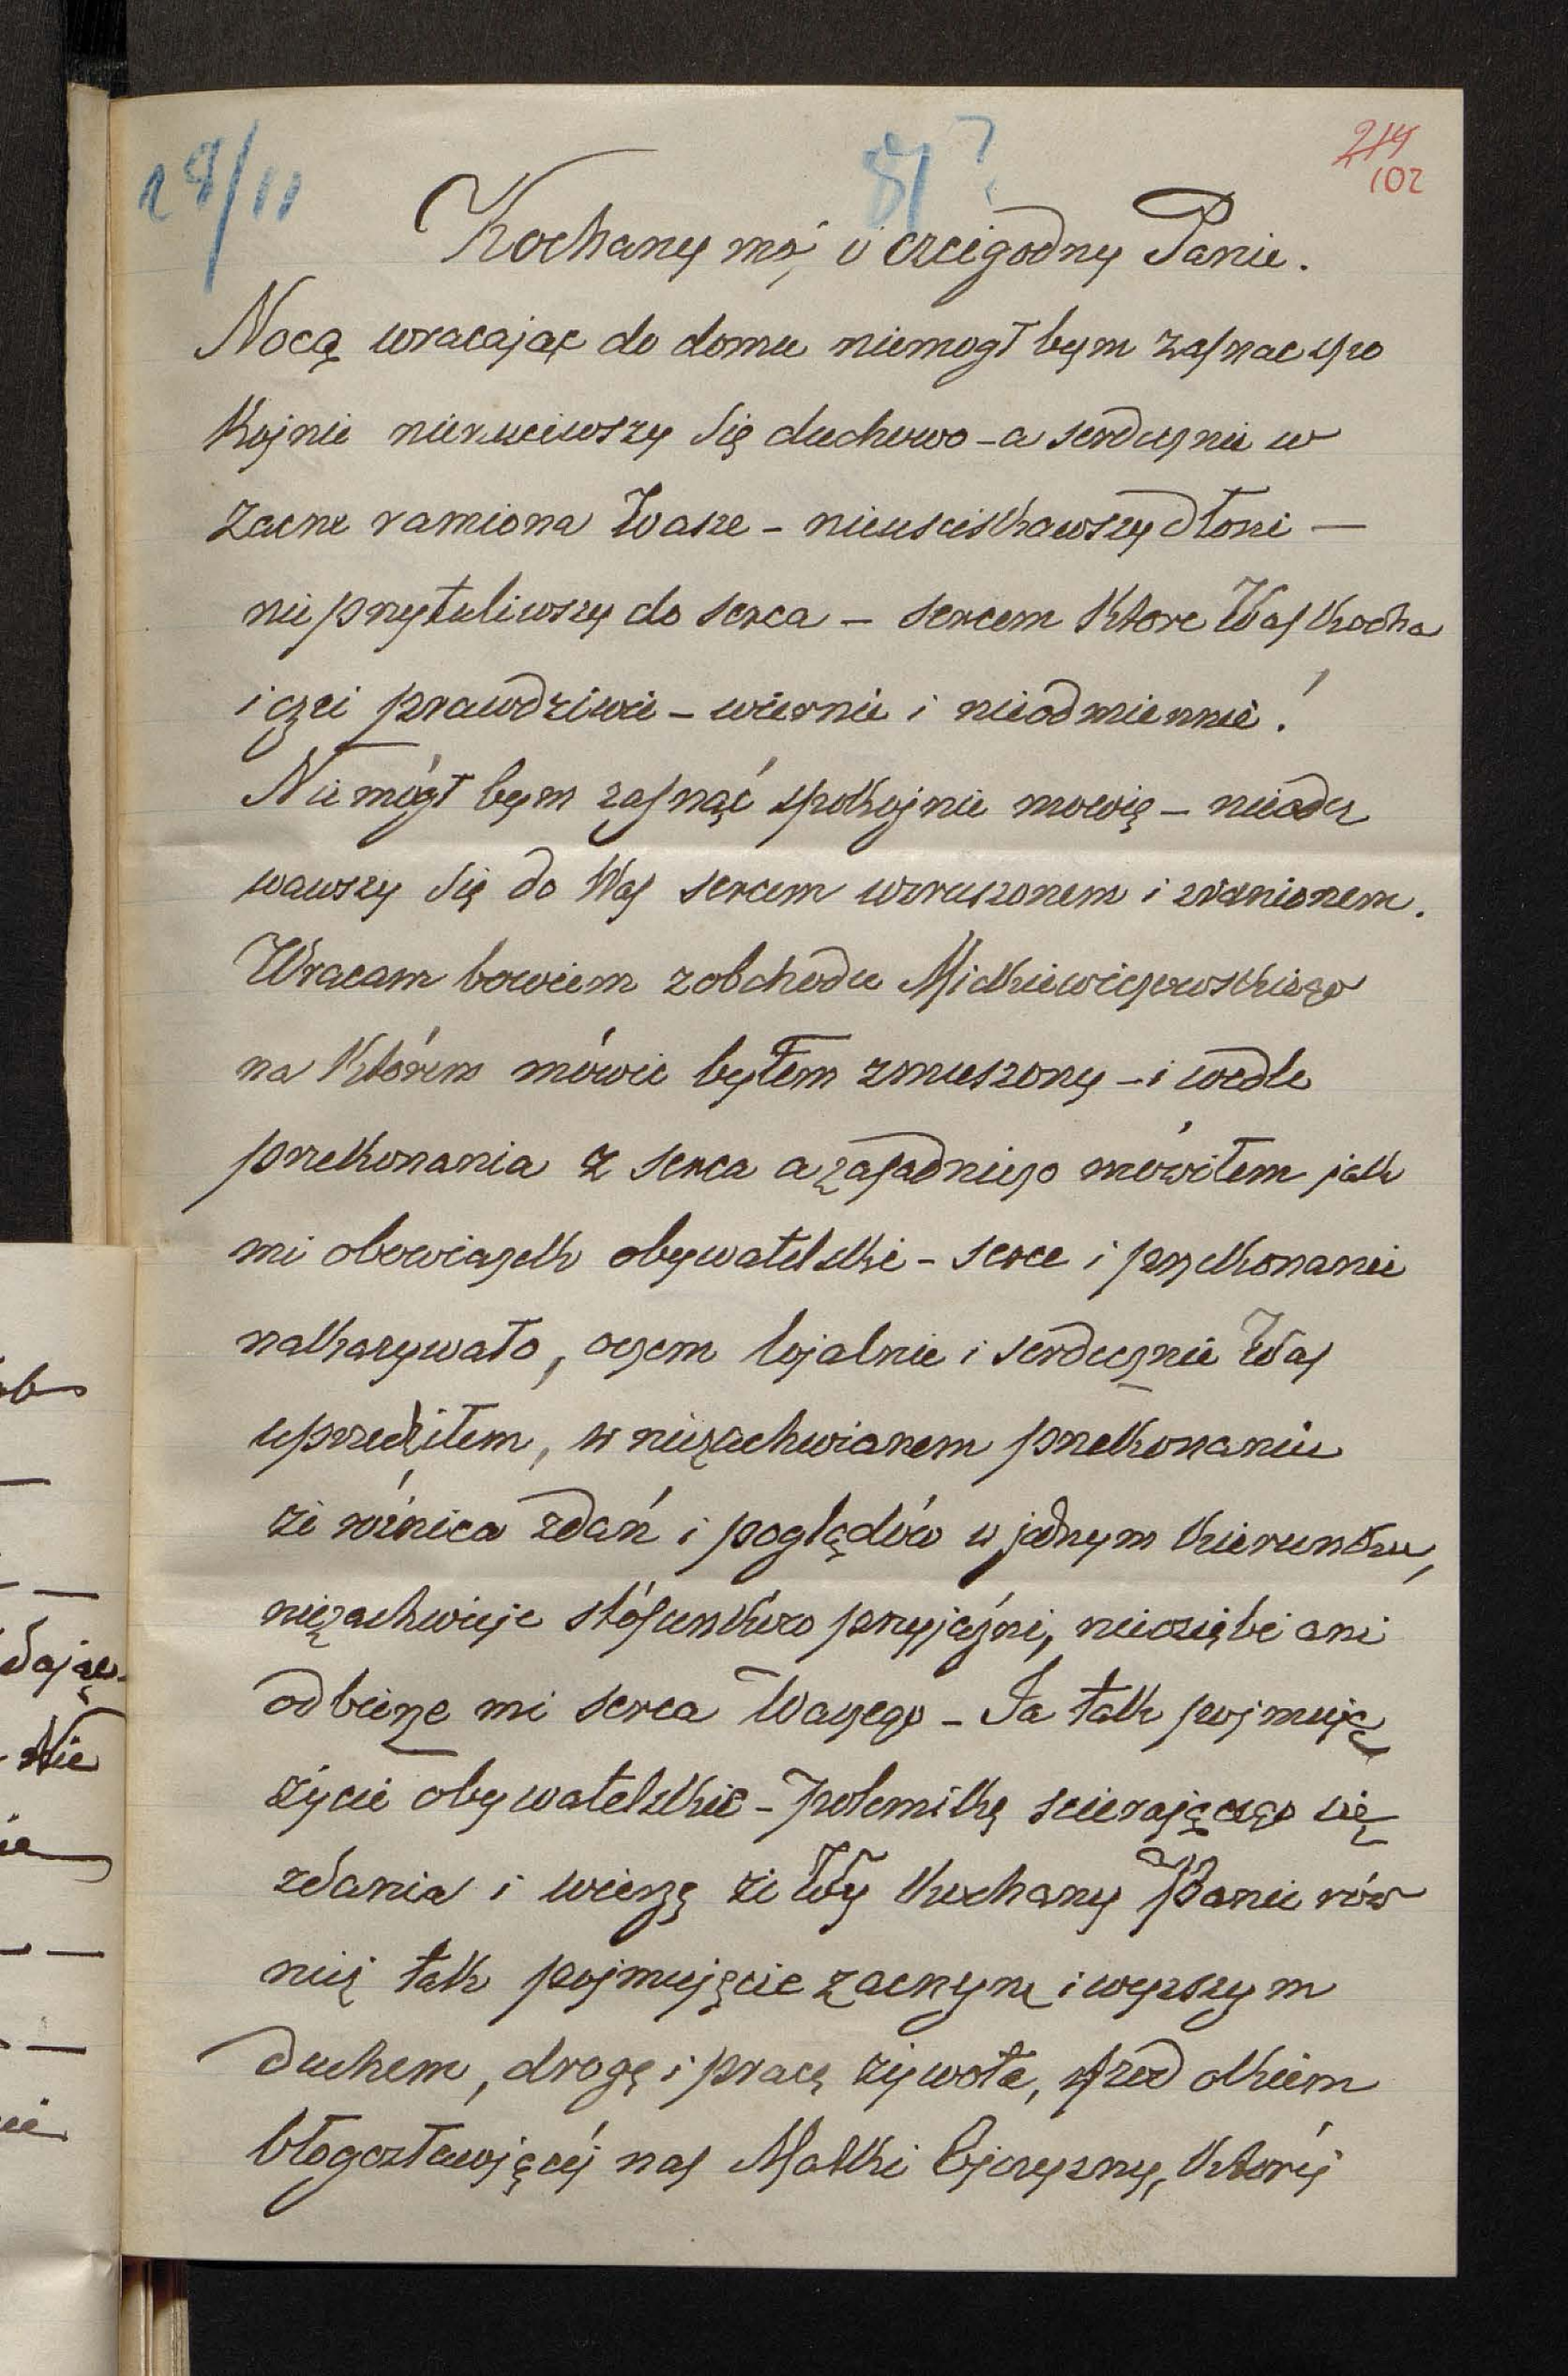 28/11
81?
214
102
Kochany mój i czcigodny Panie.
Nocą wracając do domu niemogł bym zasnac spo
kojnie nierzuciwszy się duchowo - a serdecznie w
zacne ramiona Wasze - nieusciskawszy dłoni —
nie przytuliwszy do serca - sercem które Was kocha
i czci prawdziwie - wiernie i nieodmiennie!
Nie mógł bym zasnąć spokojnie mowię - nieodez
wawszy się do Was sercem wzruszonem i zranionem.
Wracam bowiem z obchodu Mickiewiczowskiego
na którém mówić byłem zmuszony - i wedle
przekonania z serca a zasadniczo mówiłem jak
mi obowiązek obywatelski - serce i przekonanie
nakazywało, oczem lojalnie i serdecznie Was
uprzedziłem, w niezachwianem przekonaniu
że różnica zdań i poglądów w jednym kierunku,
niezachwieje stósunków przyjaźni, nieoziębi ani
odbierze mi serca Waszego - Ja tak pojmuję
życie obywatelskie - polemikę scierającego się
zdania i wierzę że Wy kochany Panie rów
nież tak pojmujęcie zacnym i wyższym
duchem, drogę i pracę żywota, przed okiem
błogosławiącéj nas Matki Ojczyzny, któréj
ob
dając
Nie
ie